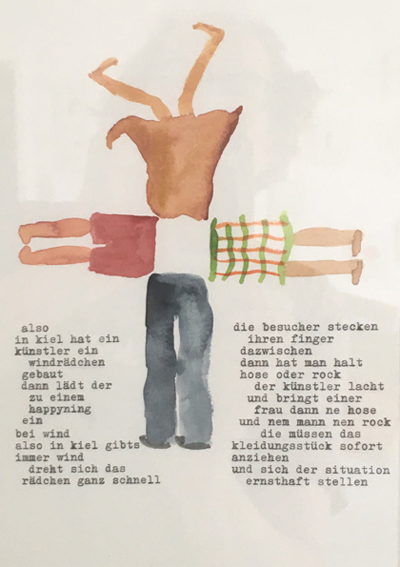 also
in kiel hat ein
künstler ein
windrädchen
gebaut
dann lädt der
zu einem
happyning
ein
bei wind
also in kiel gibts
immer wind
dreht sich das
rädchen ganz schnell
die besucher stecken
ihren finger
dazwischen
dann hat man halt
hose oder rock
der künstler lacht
und bringt einer
frau dann ne hose
und nem mann nen rock
die müssen das
kleidungsstück sofort
anziehen
und sich der situation
ernsthaft stellen